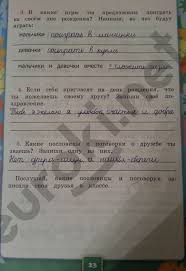 3. В какие игры ты предложишь поиграть
на своём дне рождения? Напиши, во что будут
играть:
мальчики поиграть в машинки
девочки поиграть в куклы
мальчики и девочки вместе
4. Если тебя пригласят на день рождения, что
ты пожелаешь своему другу? Запиши своё по-
здравление.
Тебе желаю я успехов счастья и добра
Какие пословицы и поговорки о дружбе ты
знаешь? Напиши одну из них.
Нет друга - ищи а нашёл - береги
Послушай, какие пословицы и поговорки за-
писали твои друзья в классе.
23